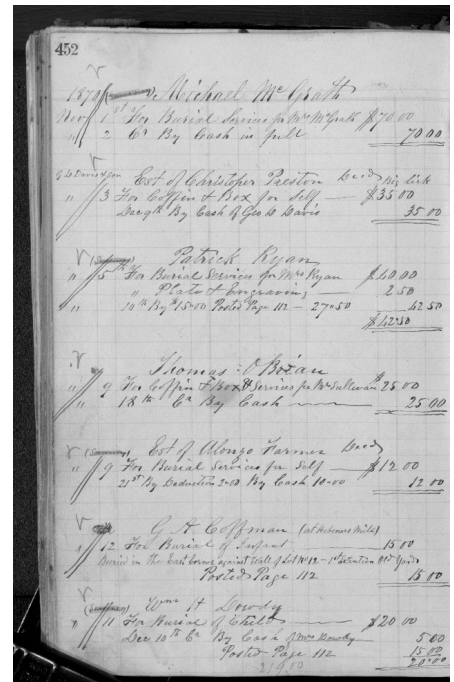 452
1870 Michael McGrath
Nov 1st For Burial Services for Mrs McGrath $70.00
" 2 Cr By Cash in full 70.00
Est of Christoper Preston Decd Big Lick
" 3 For Coffin & Box for Self $35 00
Dec 9th By Cash of Geo W Davis 35 00
Patrick Ryan
" 5th For Burial Services for Mrs Ryan $40.00
" Plate & Engraving 2 50
" 10th By $15.00 Posted Page 112 — 27.50 42 50
$42.50
Thomas O'Brian
" 9 For Coffin & Box & Services for Mr Sullivan $25 00
" 18th Cr By Cash 25.00
Est of Alonzo Farmer Decd
" 9 For Burial Services for Self $12 00
21st By Deduction 2.00 By Cash 10.00 12 00
G A Coffman
" 12 For Burial of Infant 15 00
Buried in the East Corner against Wall of Lot No 12
Posted Page 112 15 00
Wm H Dowdy
" 11 For Burial of Child $20 00
Dec 10th Cr By Cash of Mrs Dowdy 5 00
Posted Page 112 15 00
20.00